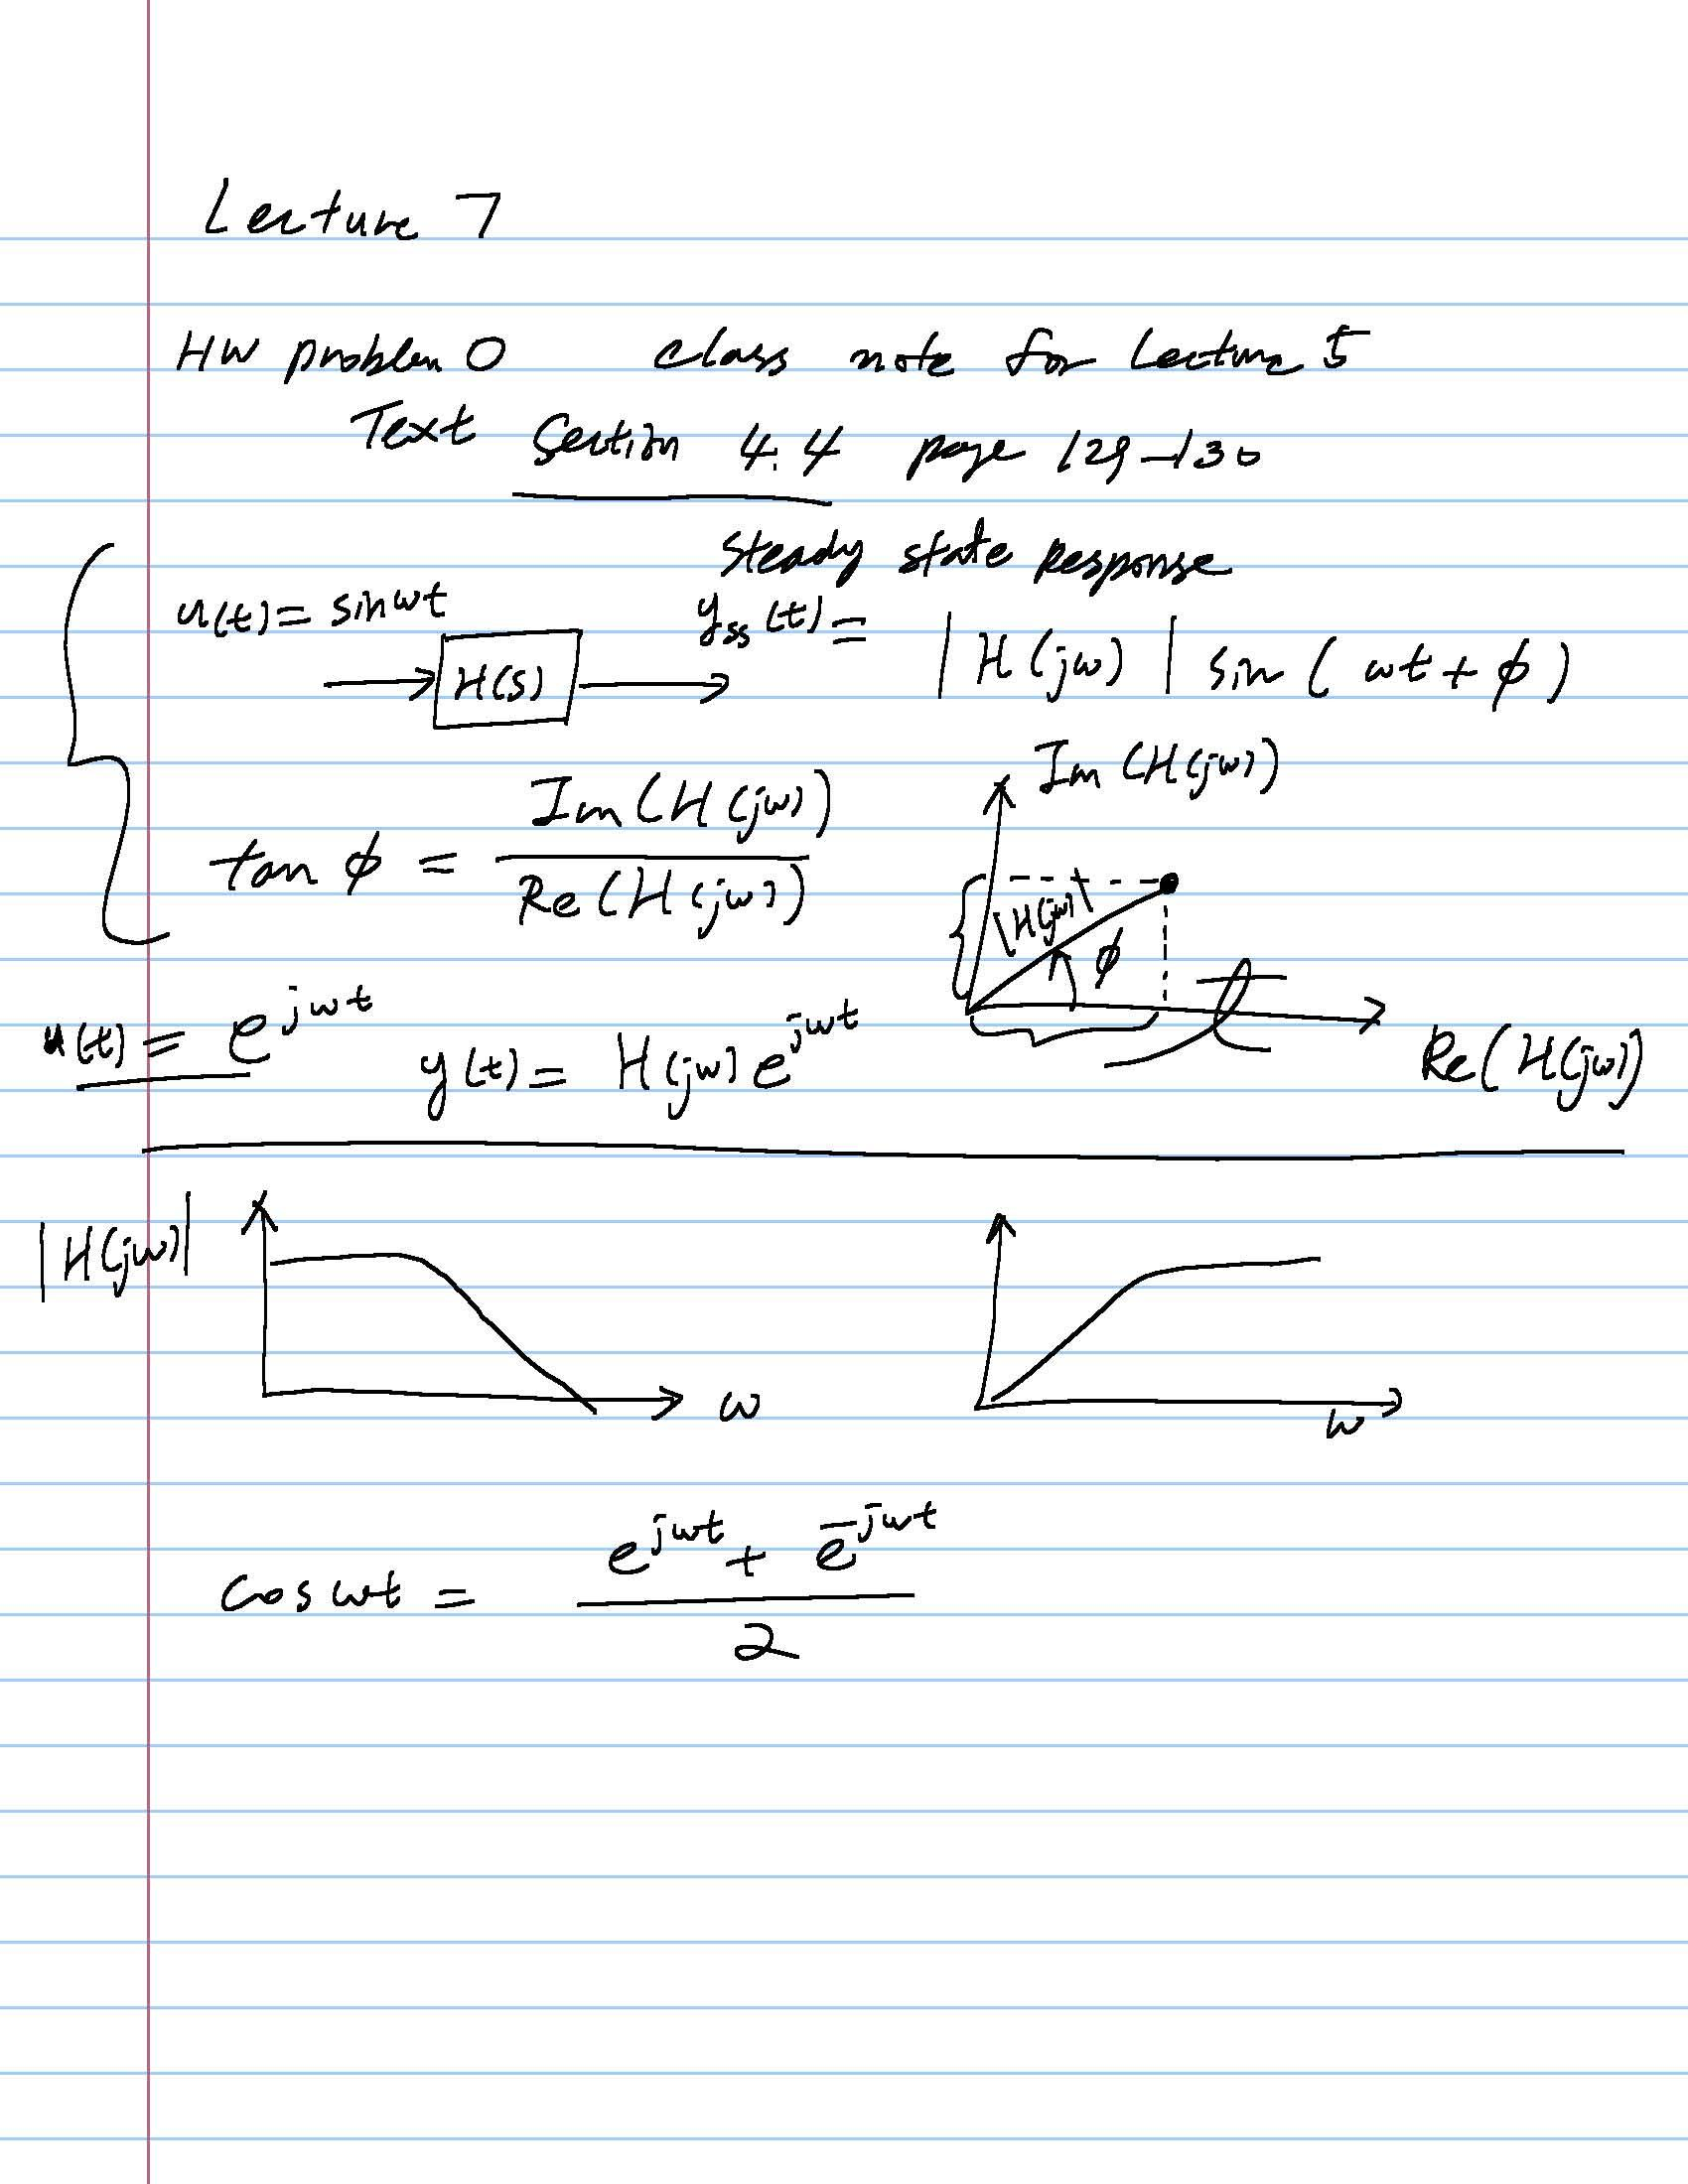 Lecture 7
HW problem 0 class note for Lecture 5
Text Section 4.4 page 129-130
Steady state Response
u(t) = sin ωt
H(s)
y_ss(t) = |H(jω)| sin(ωt + φ)
Im(H(jω))
tan φ = Im(H(jω)) / Re(H(jω))
|H(jω)|
φ
u(t) = e^{jωt}
y(t) = H(jω) e^{jωt}
Re(H(jω))
|H(jω)|
ω
ω
cos ωt = (e^{jωt} + e^{-jωt}) / 2